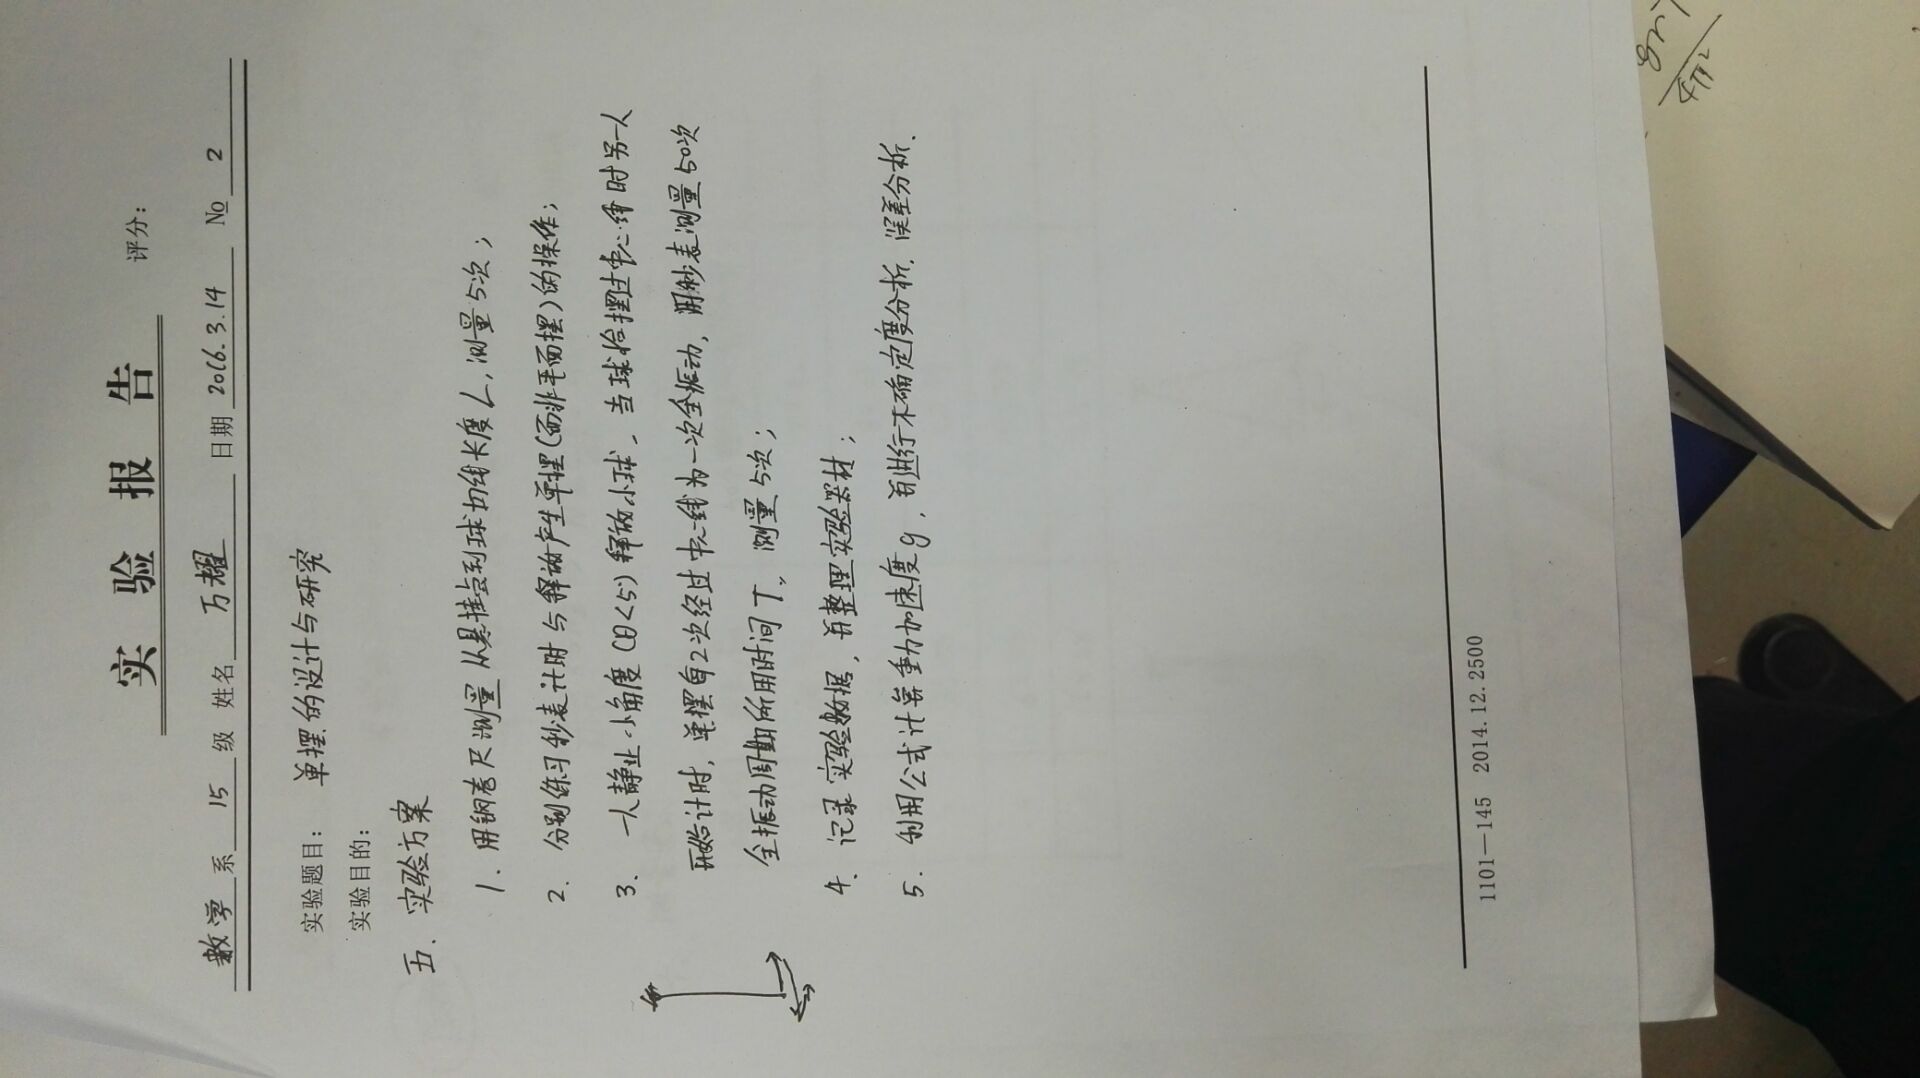 实 验 报 告
评分:
数学 系 15 级 姓名 万耀 日期 2016.3.14 No 2
实验题目: 单摆的设计与研究
实验目的:
五、实验方案
1. 用钢卷尺测量从悬挂点到球切线长度L,测量5次;
2. 分别练习秒表计时与释放产生单摆(而非平面摆)的操作;
3、一人静止小角度(θ<5)释放小球,当球恰摆过中心线时另一人
开始计时,单摆每2次经过中心线为一次全振动,用秒表测量50次
全振动周期所用时间T,测量5次;
4、记录实验数据,并整理实验器材;
5. 利用公式计算重动加速度g,并进行不确定度分析、误差分析.
1101—145 2014.12.2500
4π²